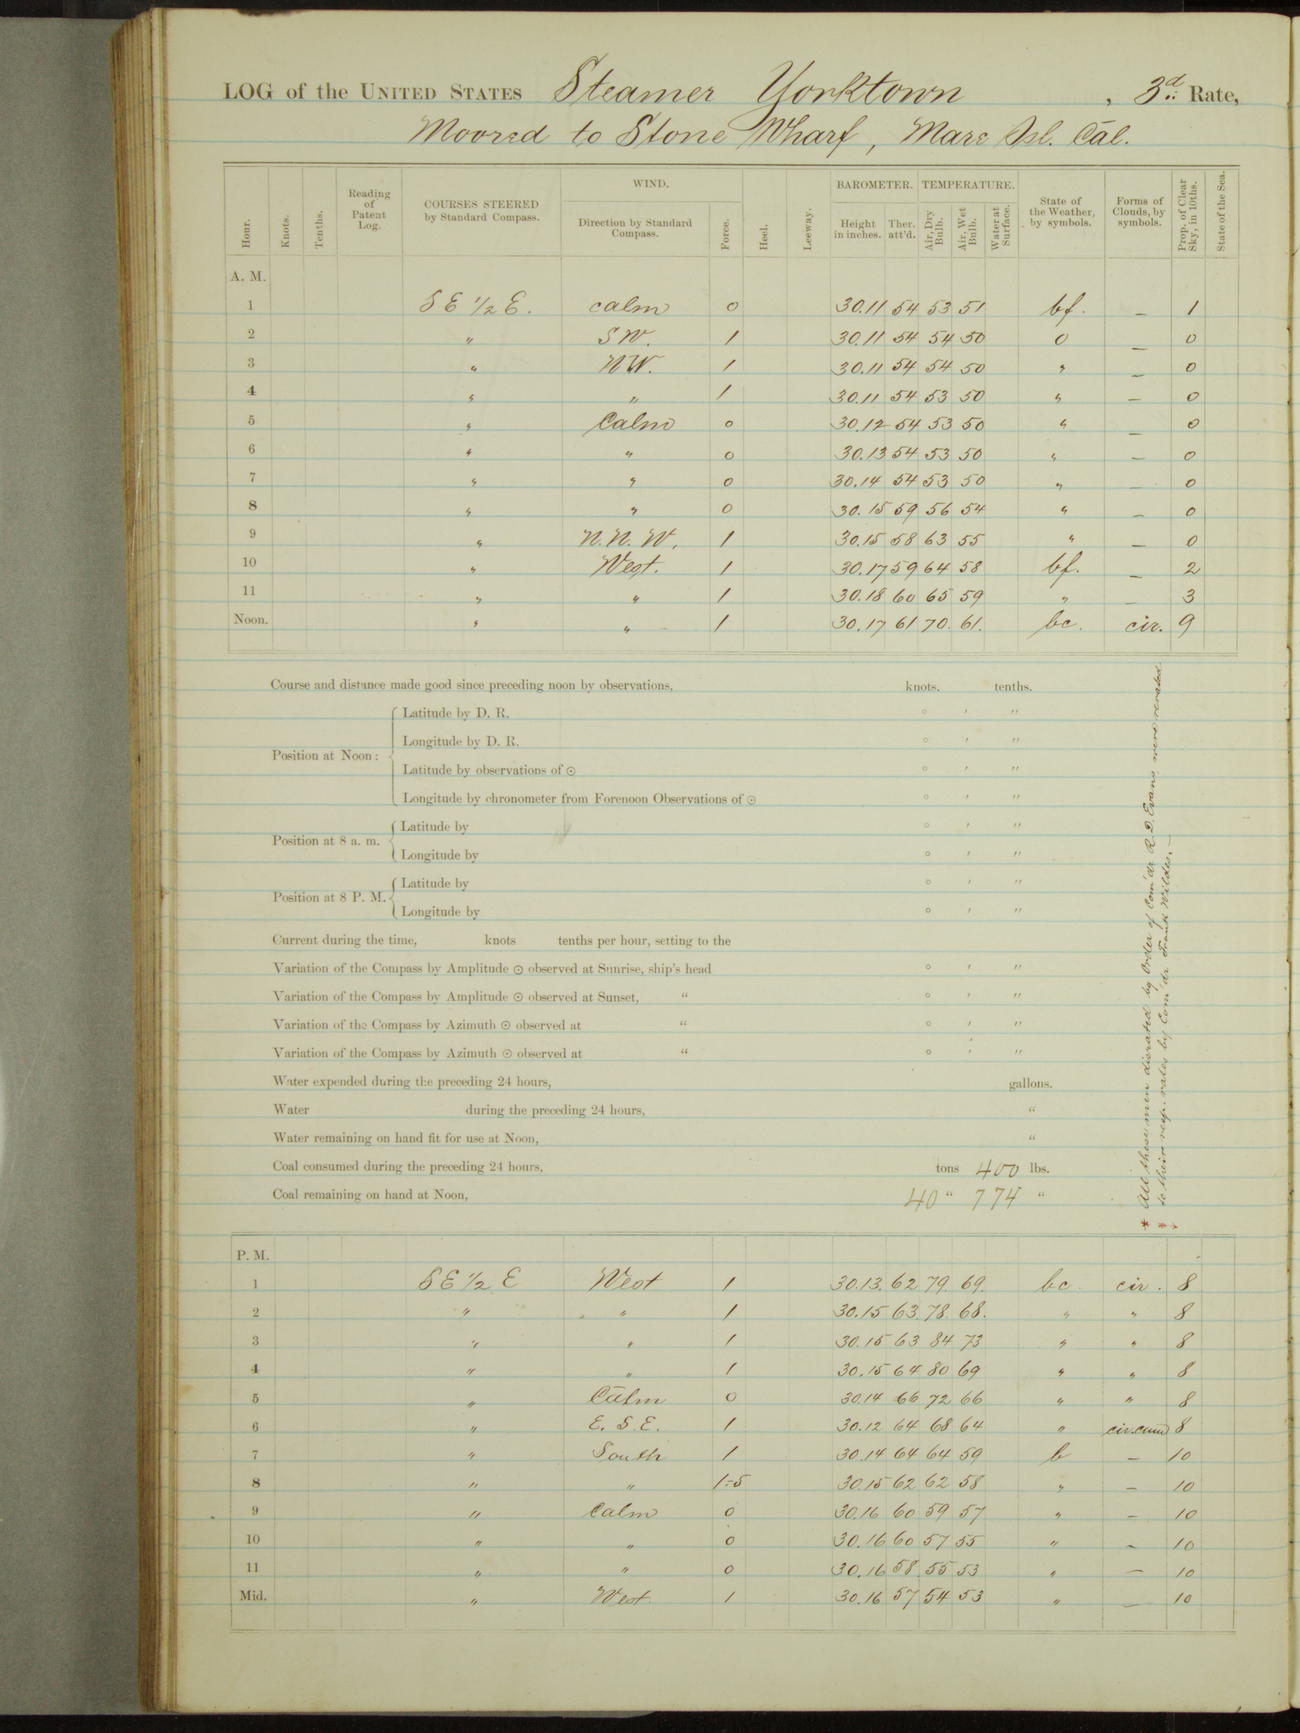 LOG of the UNITED STATES Steamer Yorktown, 3d Rate,
Moored to Stone Wharf, Mare Isl. Cal.
Hour. Knots. Tenths. Reading of Patent Log. COURSES STEERED by Standard Compass. WIND. Direction by Standard Compass. Force. Heel. Leeway. BAROMETER. Height in inches. Ther. att'd. TEMPERATURE. Air, Dry Bulb. Air, Wet Bulb. Water at Surface. State of the Weather, by symbols. Forms of Clouds, by symbols. Prop. of Clear Sky, in 10ths. State of the Sea.
A. M.
1 SE 1/2 E. calm 0 30.11 54 53 51 bf. — 1
2 " SW. 1 30.11 54 54 50 0 — 0
3 " NW. 1 30.11 54 54 50 " — 0
4 " " 1 30.11 54 53 50 " — 0
5 " Calm 0 30.12 54 53 50 " — 0
6 " " 0 30.13 54 53 50 " — 0
7 " " 0 30.14 54 53 50 " — 0
8 " " 0 30.15 59 56 54 " — 0
9 " N.N.W. 1 30.15 58 63 55 " — 0
10 " West. 1 30.17 59 64 58 bf. — 2
11 " " 1 30.18 60 65 59 " — 3
Noon. " " 1 30.17 61 70. 61. bc. cir. 9
Course and distance made good since preceding noon by observations, knots. tenths.
Position at Noon: Latitude by D. R. ° ′ ″
Longitude by D. R. ° ′ ″
Latitude by observations of ☉ ° ′ ″
Longitude by chronometer from Forenoon Observations of ☉ ° ′ ″
Position at 8 a. m. Latitude by ° ′ ″
Longitude by ° ′ ″
Position at 8 P. M. Latitude by ° ′ ″
Longitude by ° ′ ″
Current during the time, knots tenths per hour, setting to the
Variation of the Compass by Amplitude ☉ observed at Sunrise, ship's head ° ′ ″
Variation of the Compass by Amplitude ☉ observed at Sunset, " ° ′ ″
Variation of the Compass by Azimuth ☉ observed at " ° ′ ″
Variation of the Compass by Azimuth ☉ observed at " ° ′ ″
Water expended during the preceding 24 hours, gallons.
Water during the preceding 24 hours, "
Water remaining on hand fit for use at Noon, "
Coal consumed during the preceding 24 hours, tons 400 lbs.
Coal remaining on hand at Noon, 40 " 774 "
* All these men disrated by order of Com'dr R.D. Evans, were rerated
to their resp. rates by Com'dr Frank Wildes. —
P. M.
1 SE 1/2 E West 1 30.13. 62 79. 69. bc. cir. 8
2 " " 1 30.15 63. 78. 68. " " 8
3 " " 1 30.15 63 84 73 " " 8
4 " " 1 30.15 64 80 69 " " 8
5 " Calm 0 30.14 66 72 66 " " 8
6 " E. S.E. 1 30.12 64 68 64 " cir.cum 8
7 " South 1 30.14 64 64 59 b — 10
8 " " 1-5 30.15 62 62 58 " — 10
9 " Calm 0 30.16 60 59 57 " — 10
10 " " 0 30.16 60 57 55 " — 10
11 " " 0 30.16 58 55 53 " — 10
Mid. " West 1 30.16 57 54 53 " — 10